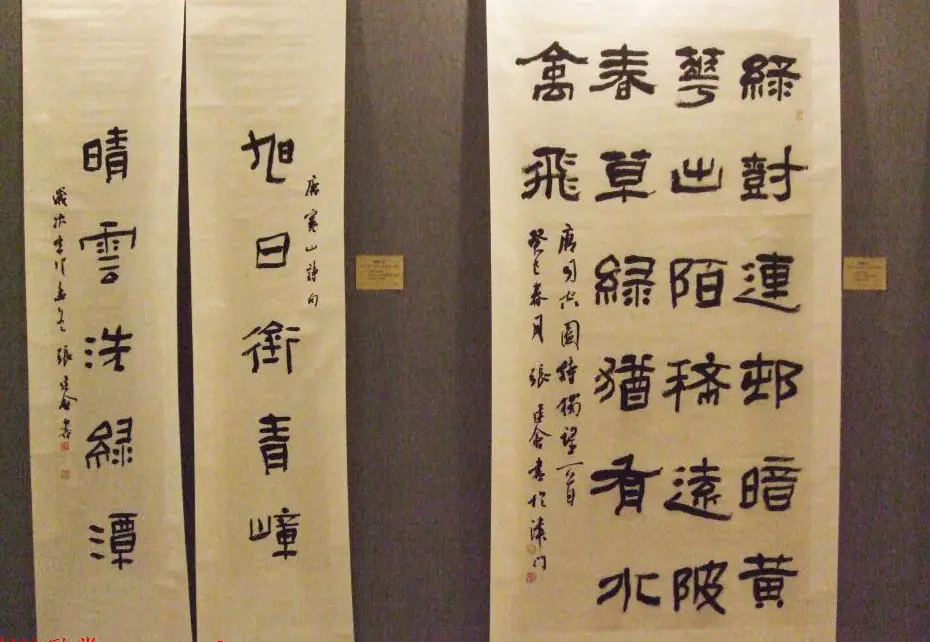 綠對連邨暗黃
華出陌稀遠陂
春草綠猶有水
禽飛
唐司空圖詩獨望一首
癸巳春月 張建會書於津門
唐寒山詩句
旭日銜青嶂
晴雲洗綠潭
歲次 張建會書